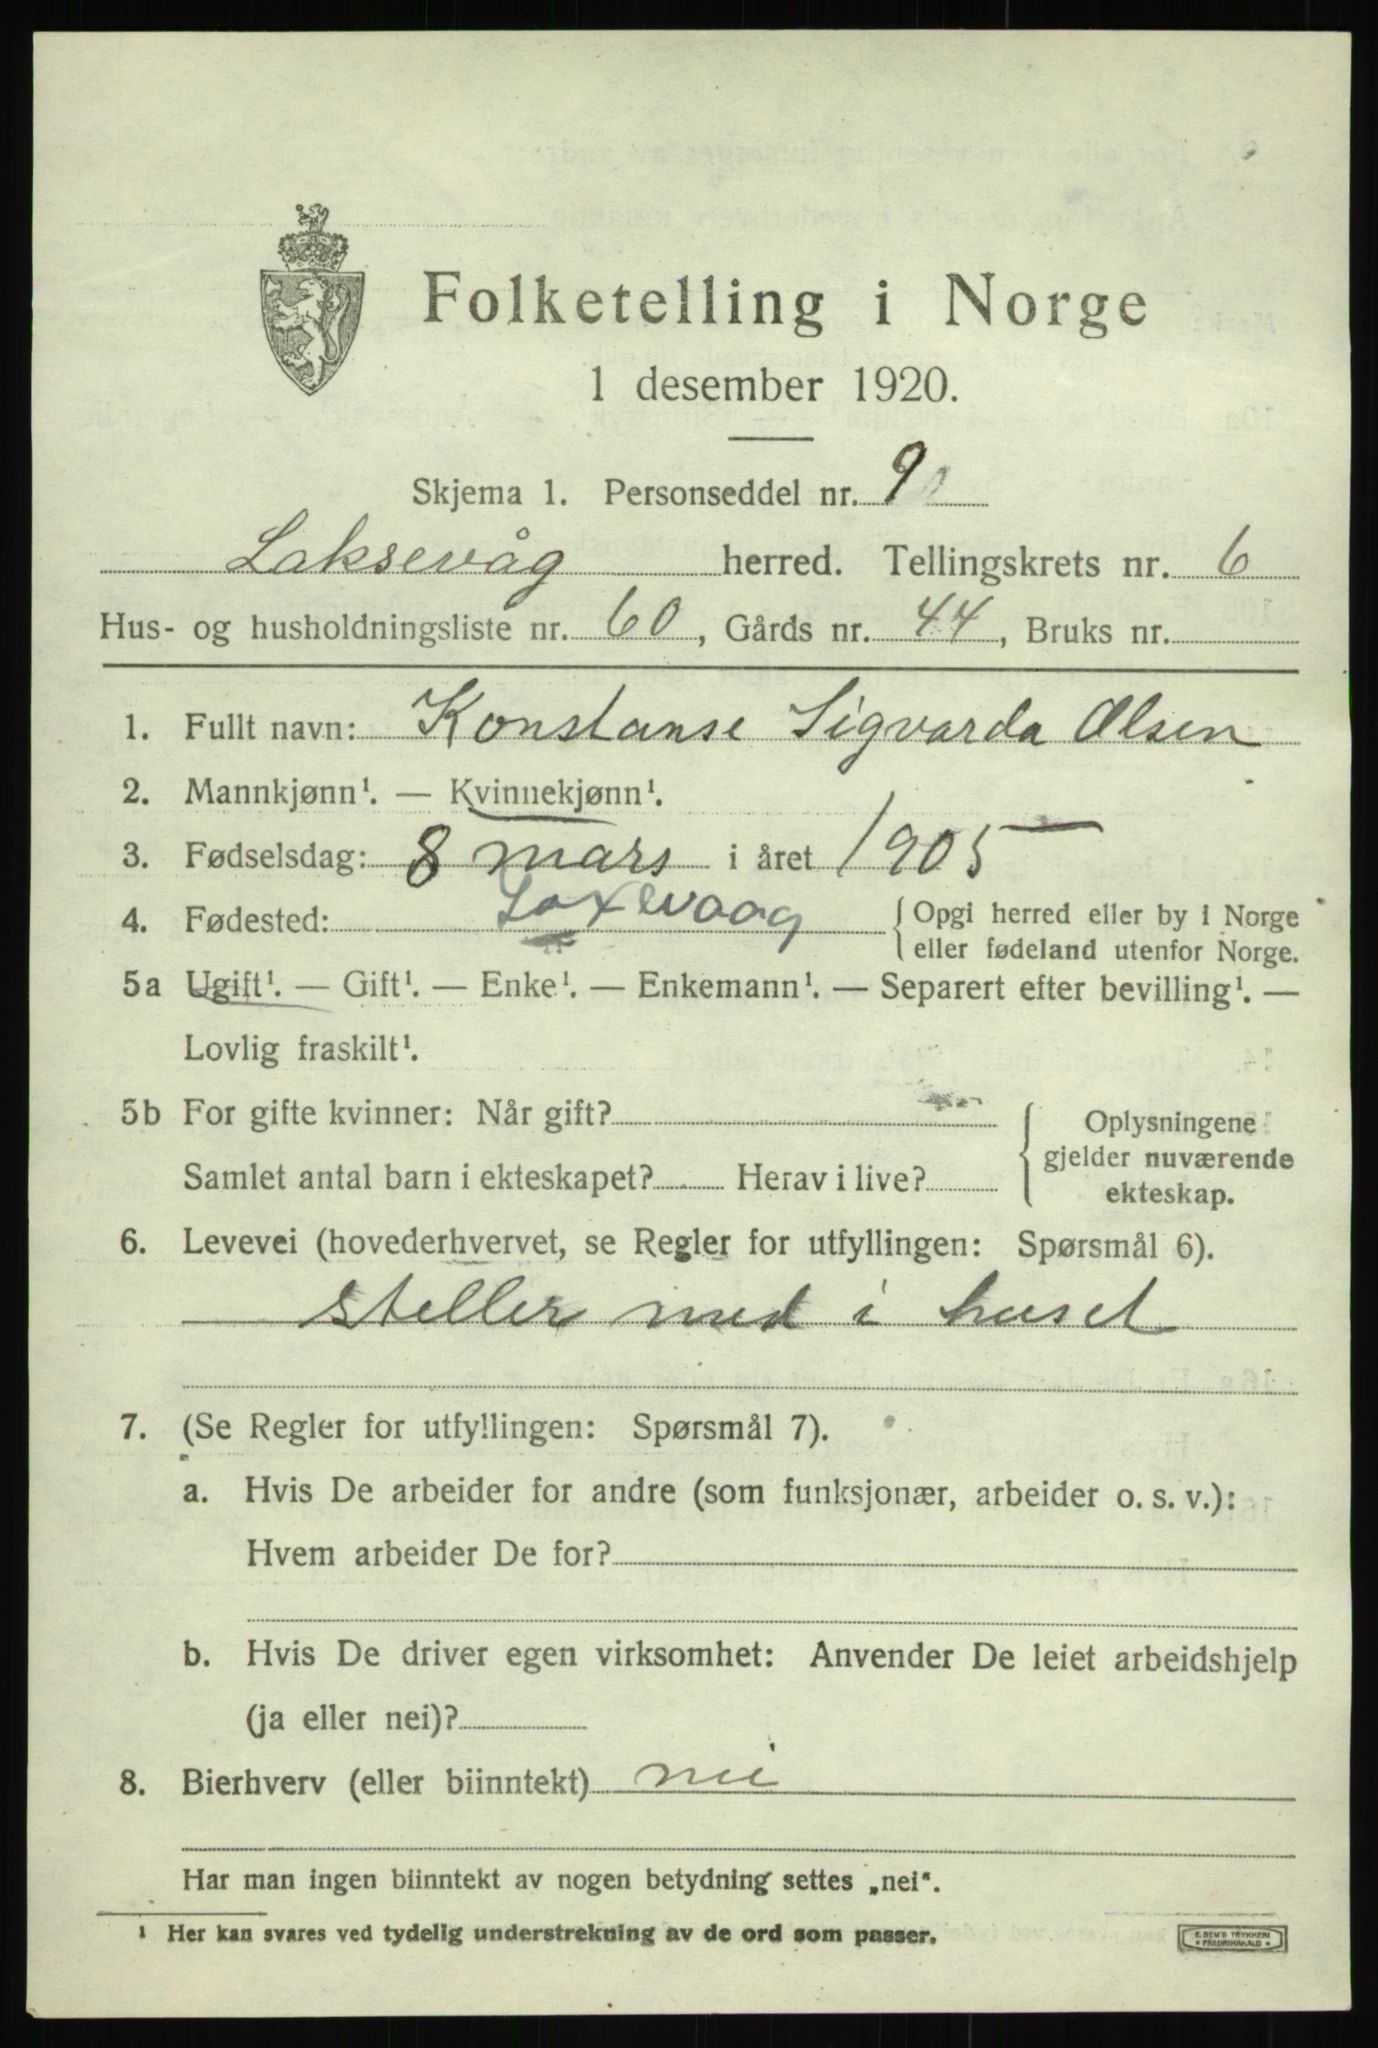 Folketelling i Norge
1 desember 1920.
Skjema 1. Personseddel nr. 9
Laksevåg herred. Tellingskrets nr. 6
Hus- og husholdningsliste nr. 60, Gårds nr. 44, Bruks nr.
1. Fullt navn: Konstanse Sigvarda Olsen
2. Mannkjønn¹. — Kvinnekjønn¹.
3. Fødselsdag: 8 mars i året 1905
4. Fødested: Laxevaag { Opgi herred eller by i Norge
eller fødeland utenfor Norge.
5a Ugift¹. — Gift¹. — Enke¹. — Enkemann¹. — Separert efter bevilling¹. —
Lovlig fraskilt¹.
5b For gifte kvinner: Når gift? { Oplysningene
gjelder nuværende
Samlet antal barn i ekteskapet? Herav i live? ekteskap.
6. Levevei (hovederhvervet, se Regler for utfyllingen: Spørsmål 6).
steller med i huset
7. (Se Regler for utfyllingen: Spørsmål 7).
a. Hvis De arbeider for andre (som funksjonær, arbeider o. s. v.):
Hvem arbeider De for?
b. Hvis De driver egen virksomhet: Anvender De leiet arbeidshjelp
(ja eller nei)?
8. Bierhverv (eller biinntekt) nei
Har man ingen biinntekt av nogen betydning settes „nei“.
¹ Her kan svares ved tydelig understrekning av de ord som passer.
E. SEM'S TRYKKERI
FREDRIKSHALD